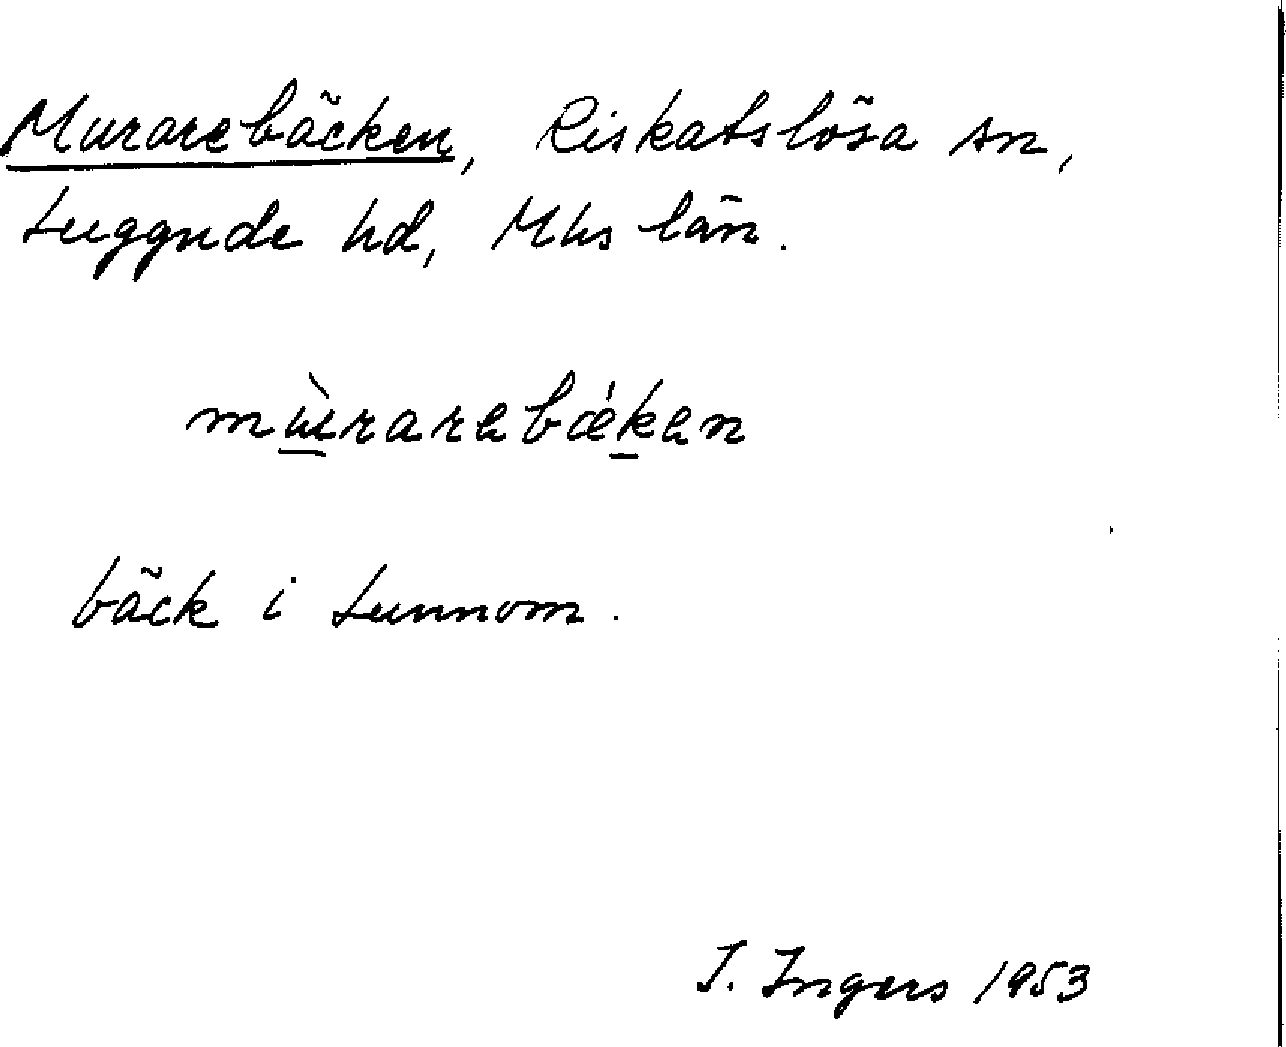 Murarebäcken, Riskatslösa sn,
Luggude hd, Mhs län.
mùrarebǽken
bäck i Lunnom.
I. Ingers 1953